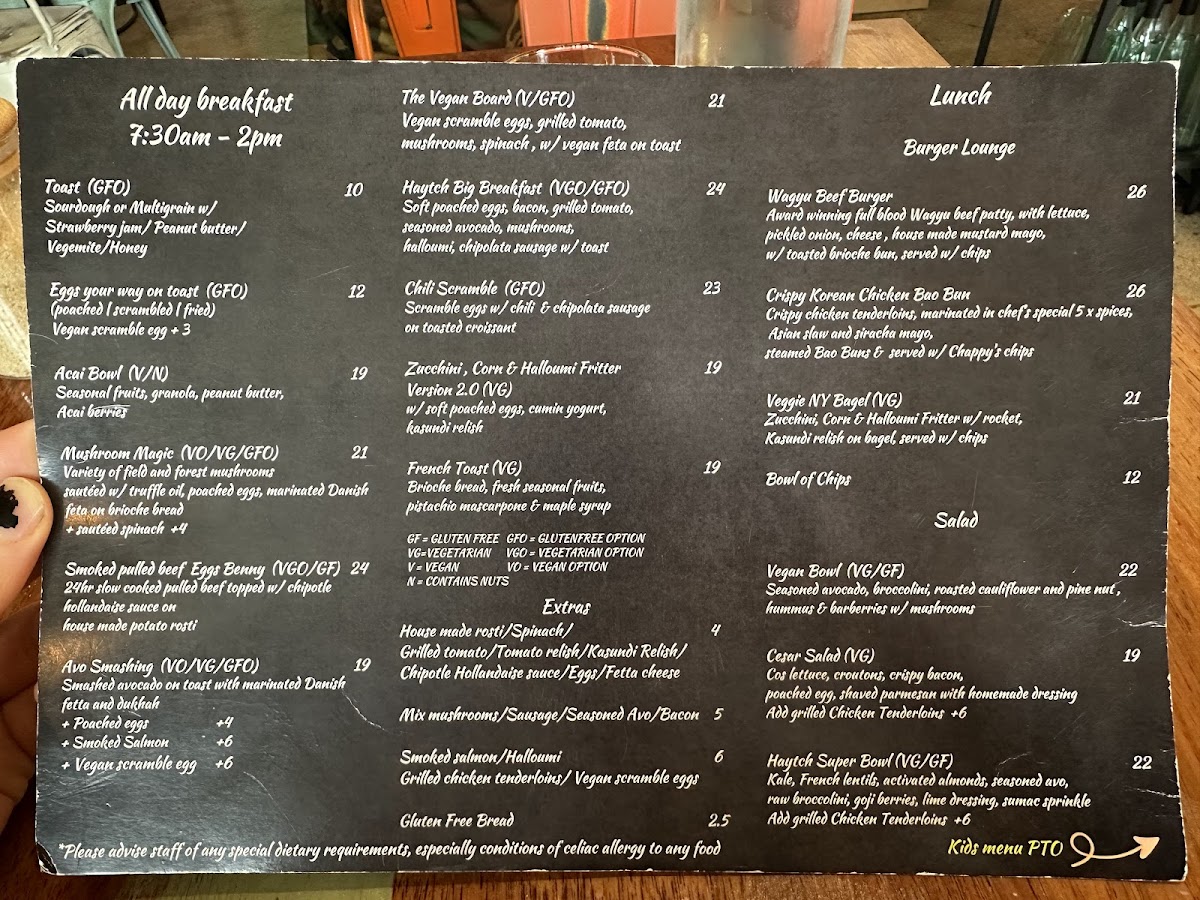 All day breakfast
7:30am - 2pm
Toast (GFO) 10
Sourdough or Multigrain w/
Strawberry jam/ Peanut butter/
Vegemite/Honey
Eggs your way on toast (GFO) 12
(poached | scrambled | fried)
Vegan scramble egg + 3
Acai Bowl (V/N) 19
Seasonal fruits, granola, peanut butter,
Acai berries
Mushroom Magic (VO/VG/GFO) 21
Variety of field and forest mushrooms
sautéed w/ truffle oil, poached eggs, marinated Danish
feta on brioche bread
+ sautéed spinach +4
Smoked pulled beef Eggs Benny (VGO/GF) 24
24hr slow cooked pulled beef topped w/ chipotle
hollandaise sauce on
house made potato rosti
Avo Smashing (VO/VG/GFO) 19
Smashed avocado on toast with marinated Danish
fetta and dukhah
+ Poached eggs +4
+ Smoked Salmon +6
+ Vegan scramble egg +6
The Vegan Board (V/GFO) 21
Vegan scramble eggs, grilled tomato,
mushrooms, spinach , w/ vegan feta on toast
Haytch Big Breakfast (VGO/GFO) 24
Soft poached eggs, bacon, grilled tomato,
seasoned avocado, mushrooms,
halloumi, chipolata sausage w/ toast
Chili Scramble (GFO) 23
Scramble eggs w/ chili & chipolata sausage
on toasted croissant
Zucchini , Corn & Halloumi Fritter 19
Version 2.0 (VG)
w/ soft poached eggs, cumin yogurt,
kasundi relish
French Toast (VG) 19
Brioche bread, fresh seasonal fruits,
pistachio mascarpone & maple syrup
GF = GLUTEN FREE GFO = GLUTENFREE OPTION
VG=VEGETARIAN VGO = VEGETARIAN OPTION
V = VEGAN VO = VEGAN OPTION
N = CONTAINS NUTS
Extras
House made rosti/Spinach/ 4
Grilled tomato/Tomato relish/Kasundi Relish/
Chipotle Hollandaise sauce/Eggs/Fetta cheese
Mix mushrooms/Sausage/Seasoned Avo/Bacon 5
Smoked salmon/Halloumi 6
Grilled chicken tenderloins/ Vegan scramble eggs
Gluten Free Bread 2.5
*Please advise staff of any special dietary requirements, especially conditions of celiac allergy to any food
Lunch
Burger Lounge
Wagyu Beef Burger 26
Award winning full blood Wagyu beef patty, with lettuce,
pickled onion, cheese , house made mustard mayo,
w/ toasted brioche bun, served w/ chips
Crispy Korean Chicken Bao Bun 26
Crispy chicken tenderloins, marinated in chef's special 5 x spices,
Asian slaw and siracha mayo,
steamed Bao Buns & served w/ Chappy's chips
Veggie NY Bagel (VG) 21
Zucchini, Corn & Halloumi Fritter w/ rocket,
Kasundi relish on bagel, served w/ chips
Bowl of Chips 12
Salad
Vegan Bowl (VG/GF) 22
Seasoned avocado, broccolini, roasted cauliflower and pine nut ,
hummus & barberries w/ mushrooms
Cesar Salad (VG) 19
Cos lettuce, croutons, crispy bacon,
poached egg, shaved parmesan with homemade dressing
Add grilled Chicken Tenderloins +6
Haytch Super Bowl (VG/GF) 22
Kale, French lentils, activated almonds, seasoned avo,
raw broccolini, goji berries, lime dressing, sumac sprinkle
Add grilled Chicken Tenderloins +6
Kids menu PTO